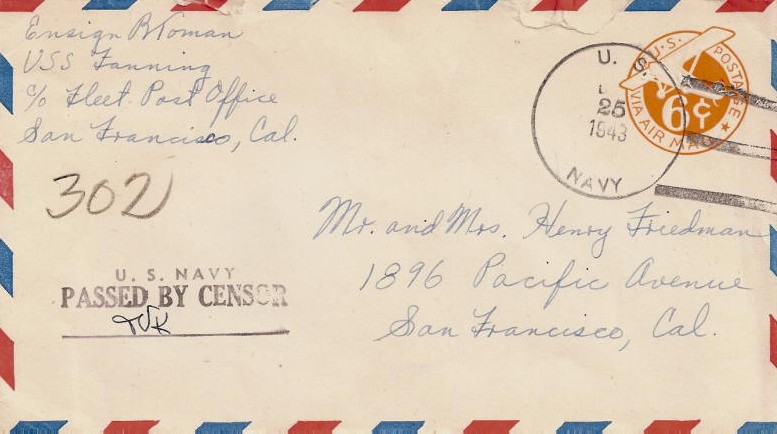 Ensign B Toman
USS Fanning
c/o Fleet Post Office
San Francisco, Cal.
302
U. S.
25
1943
NAVY
U.S. POSTAGE
6¢
VIA AIR MAIL
Mr. and Mrs. Henry Friedman
1896 Pacific Avenue
San Francisco, Cal.
U. S. NAVY
PASSED BY CENSOR